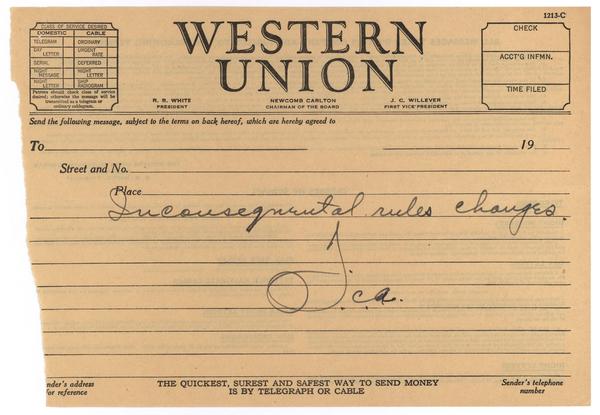 1213-C
CLASS OF SERVICE DESIRED
DOMESTIC CABLE
TELEGRAM ORDINARY
DAY LETTER URGENT RATE
SERIAL DEFERRED
NIGHT MESSAGE NIGHT LETTER
NIGHT LETTER SHIP RADIOGRAM
Patrons should check class of service
desired; otherwise the message will be
transmitted as a telegram or
ordinary cablegram.
WESTERN
UNION
R. B. WHITE
PRESIDENT
NEWCOMB CARLTON
CHAIRMAN OF THE BOARD
J. C. WILLEVER
FIRST VICE-PRESIDENT
CHECK
ACCT'G INFMN.
TIME FILED
Send the following message, subject to the terms on back hereof, which are hereby agreed to
To 19
Street and No.
Place
Inconseqmental rules changes.
J.c.a.
ender's address
for reference
THE QUICKEST, SUREST AND SAFEST WAY TO SEND MONEY
IS BY TELEGRAPH OR CABLE
Sender's telephone
number